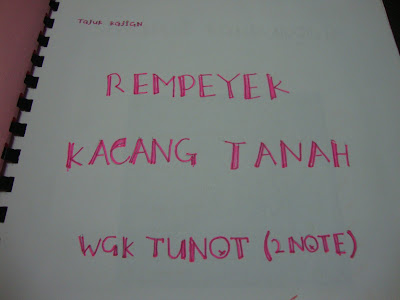 TAJUK KAJIAN
REMPEYEK
KACANG TANAH
WGK TUNOT (2 NOTE)